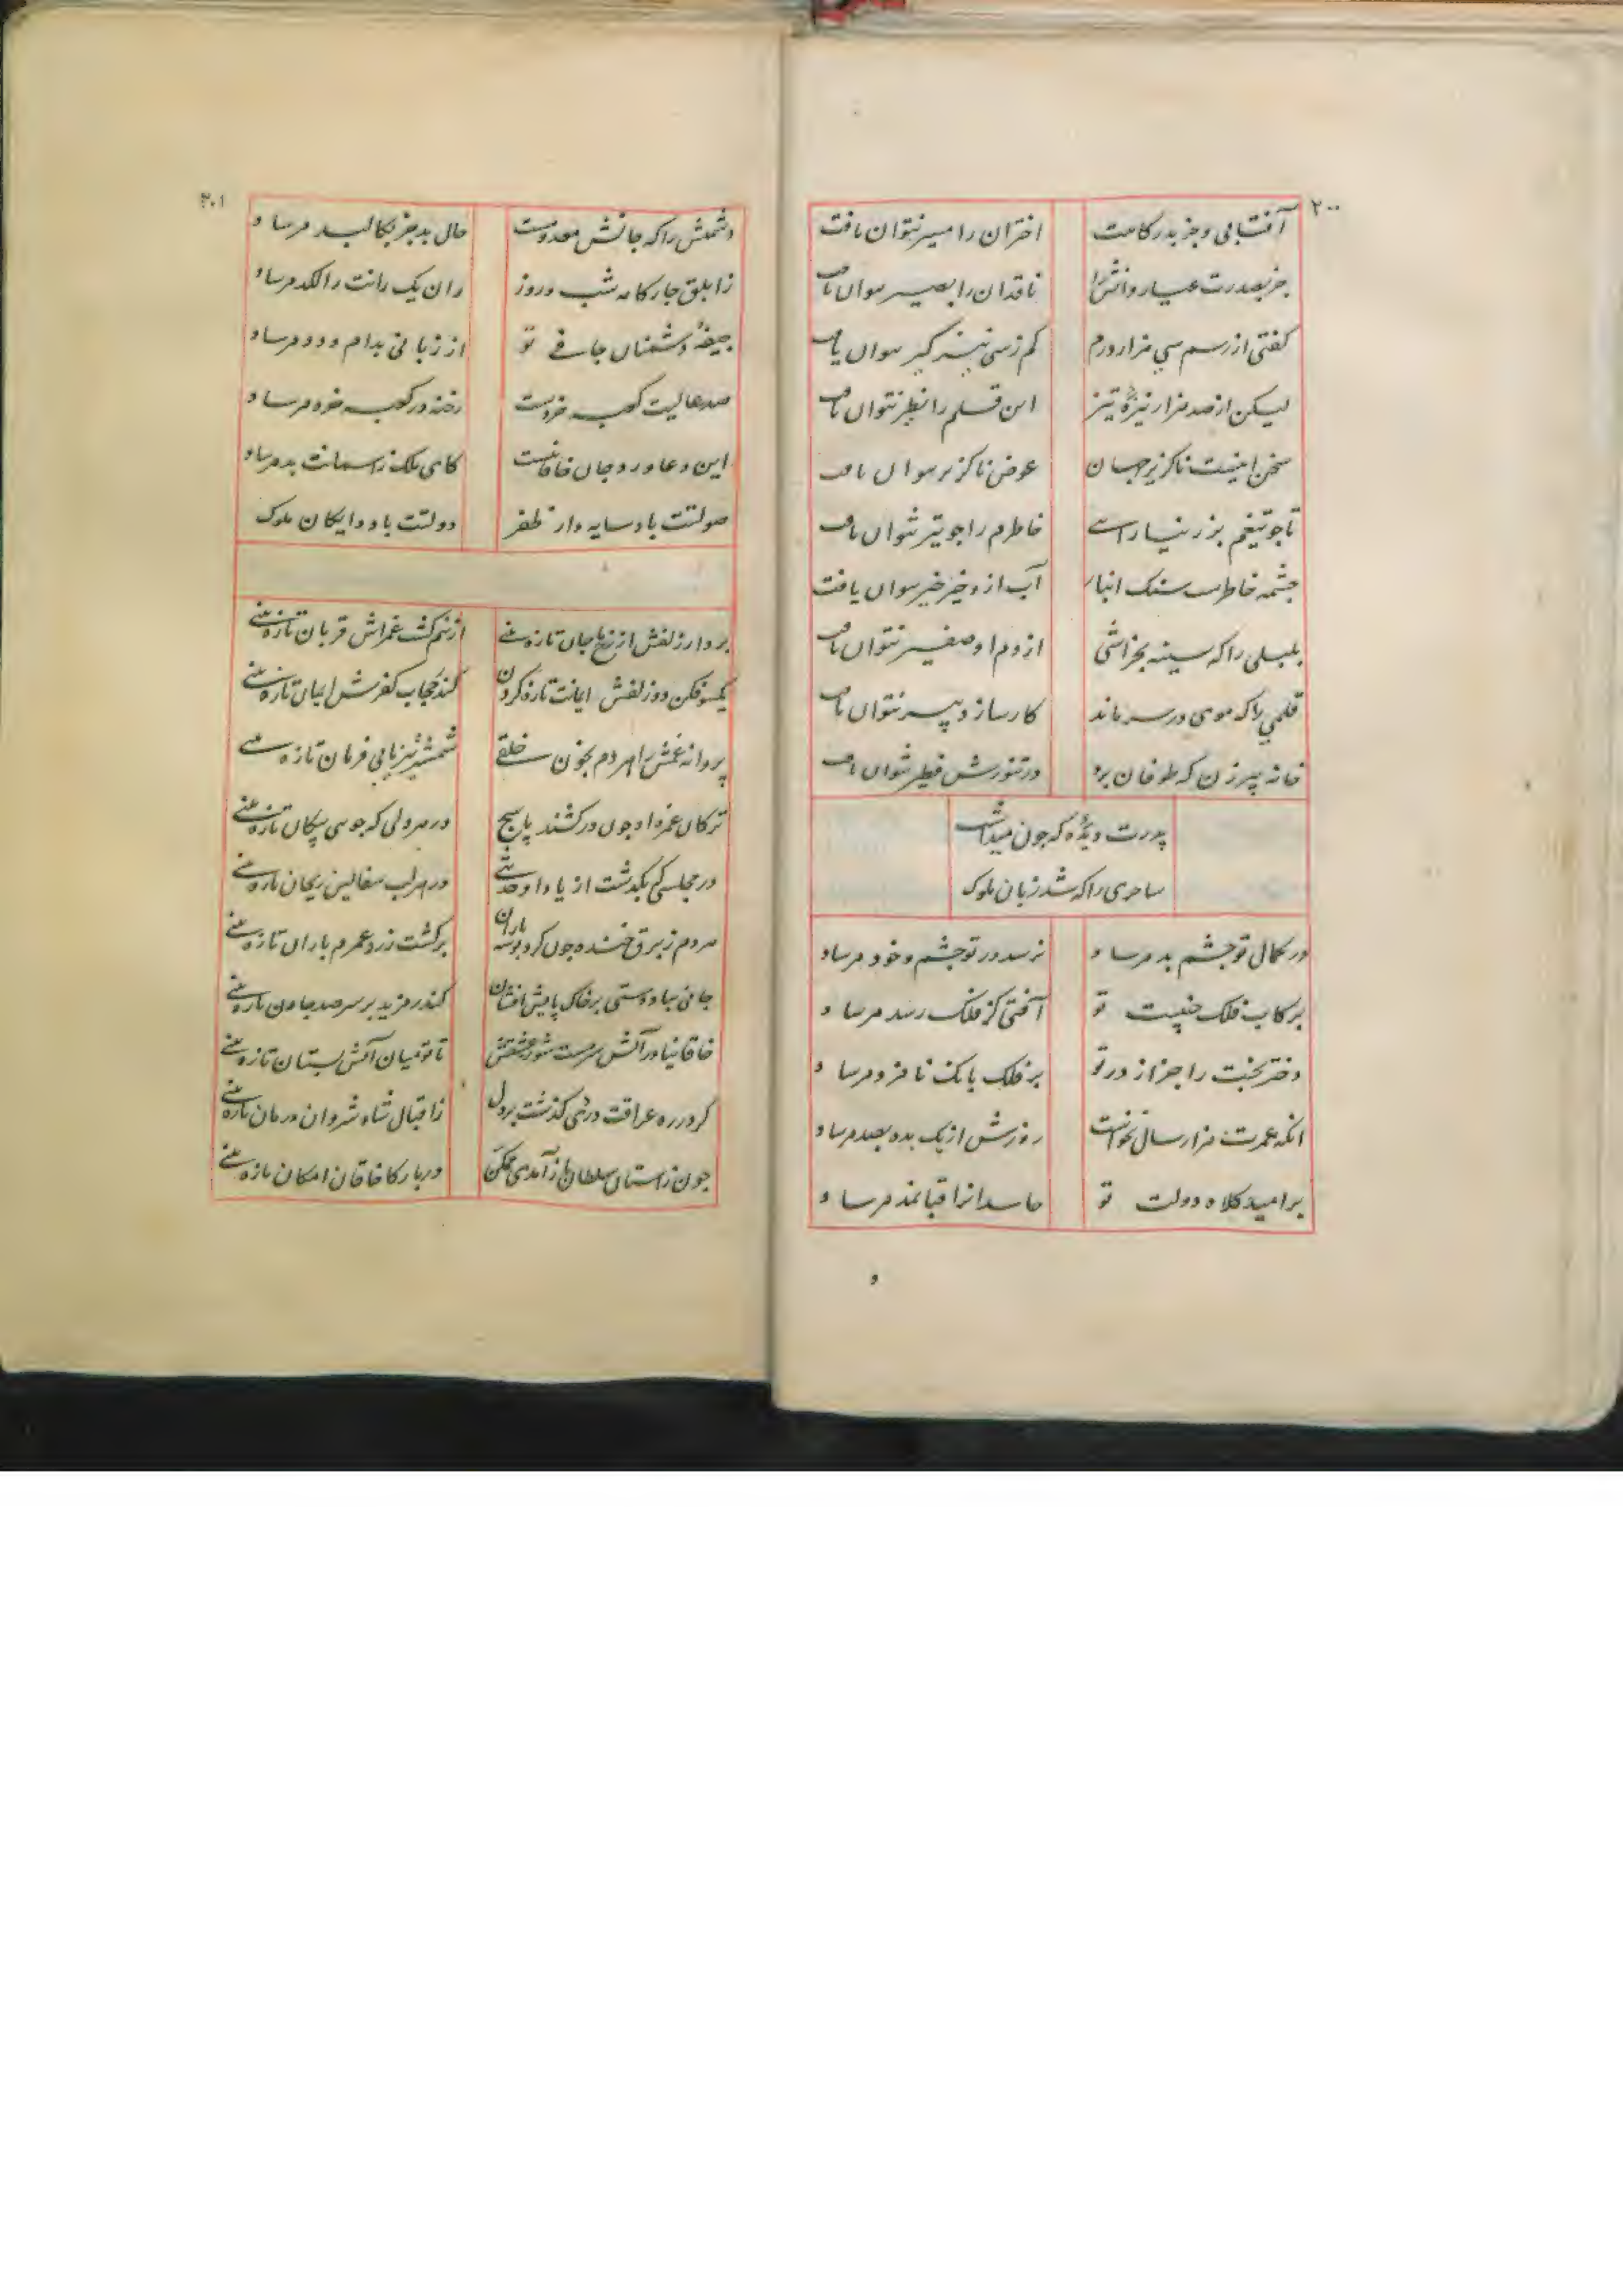 ۲۰۰
آفتابی و جز بدرکاهت
اختران را مسیر نتوان یافت
جز بصدرت عیار دانش را
ناقدان را بصیر نتوان یافت
کفتی از رسم سی هزار درم
کم زسی نیزه کیر نتوان یافت
لیکن از صد هزار نیزهٔ تیز
این قلم را نظیر نتوان یافت
سخن اینست ناکزیر جهان
عوض ناکزیر نتوان یافت
تا جو تیغم بزر نیارایے
خاطرم را جو تیر نتوان یافت
جشمه خاطرست سنک انبار
آب ازو خیر خیر نتوان یافت
بلبلی را که سینه بخراشی
از دم او صفیر نتوان یافت
قلمی را که موی در سر ماند
کارساز دبیر نتوان یافت
خانه پیرزن که طوفان برد
در تنورش فطیر نتوان یافت
پدرت دیدهٔ که جون میداشت
ساحری را که شد زبان ملوک
در کمال تو جشم بد مرساد
نرسد در تو جشم و خود مرساد
بر کاب فلک جنیبت تو
آفتی کز فلک رسد مرساد
دختر بختت را جز از در تو
بر فلک بانک نامزد مرساد
انکه عمرت هزار سال نخواست
روزش از یک بده بصد مرساد
بر امید کلاه دولت تو
حاسدانرا قبا نمد مرساد
۲۰۱
دشمنش را که جانش معدومست
حال بد جز بکالبد مرساد
زابلق جارکامه شب و روز
ران یک رانت را لکد مرساد
جیفهٔ دشمنان جافے تو
از زبانی بدام و دد مرساد
صدر عالیت کعبه خردست
رخنه در کعبه خرد مرساد
این دعا ورد جان خاقانیست
کای ملک زاسمانت بد مرساد
صولتت باد سایه دار ظفر
دولتت باد دایکان ملوک
بردار زلفش از رخ تا جان تازه بینے
از نیم کشت غمزاش قربان تازه بینے
یکسو فکن دو زلفش ایمانت تازه کردن
کندر حجاب کفرش ایمان تازه بینے
پروانه غمش را هر دم بخون خلقے
شمشیر تیز یابی فرمان تازه بینے
ترکان غمزه او جون درکشند پاسج
در هر دلی که جویی پیکان تازه بینے
در مجلسی که بکذشت از یاد او حدیثے
در هر لب سفالین ریحان تازه بینے
هر دم ز برق خنده جون کرد بوسه باران
برکشت زرد عمرم باران تازه بینے
جانی بباد دستی بر خاک پایش افشان
کندر مزید بر سر صد جان تازه بینے
خاقانیا در آتش سرمست شو ز عشقش
تا تو میان آتش بستان تازه بینے
کر در ره عراقت دردی کذشت بر دل
زاقبال شاه شروان درمان تازه بینے
جون ز استان سلطان باز آمدی ممکن
دربار کا خاقان امکان تازه بینے